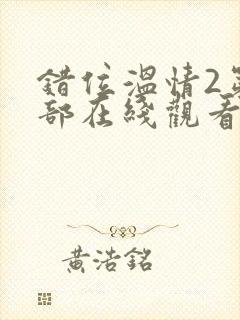 錯位溫情2
部在綫觀看
黃浩銘